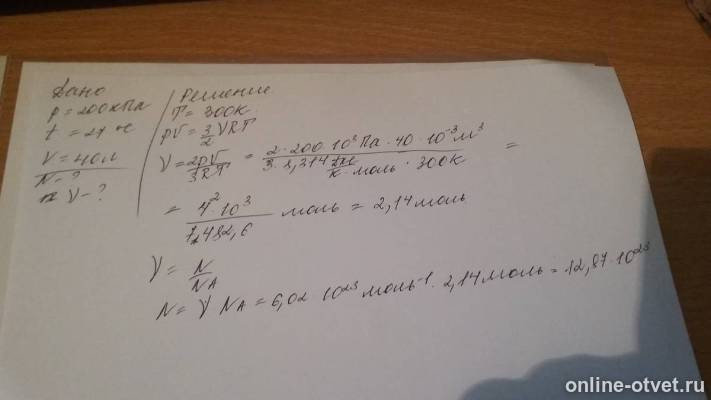 Дано
p = 200 кПа
t = 27 °C
V = 40 л
N - ?
ν - ?
Решение
T = 300 К
pV = 3/2 νRT
ν = 2pV/3RT = 2 · 200 · 10³ Па · 40 · 10⁻³ м³ / 3 · 8,314 Дж/К · моль · 300 К =
= моль = 2,14 моль
ν = N/NA
N = ν NA = 6,02 10²³ моль⁻¹ · 2,14 моль = 12,87 · 10²³
online-otvet.ru